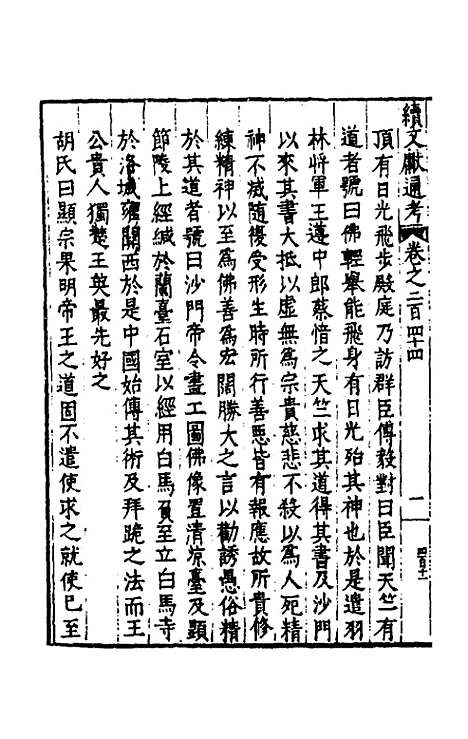 續文獻通考 卷之二百四十四 一
頂有日光飛步殿庭乃訪群臣傅毅對曰臣聞天竺有
道者號曰佛輕舉能飛身有日光殆其神也於是遣羽
林將軍王遵中郎蔡愔之天竺求其道得其書及沙門
以來其書大抵以虛無爲宗貴慈悲不殺以爲人死精
神不减隨復受形生時所行善惡皆有報應故所貴修
練精神以至爲佛善爲宏闊勝大之言以勸誘愚俗精
於其道者號曰沙門帝令畫工圖佛像置清凉臺及顯
節陵上經緘於蘭臺石室以經用白馬負至立白馬寺
於洛城雍關西於是中國始傳其術及拜跪之法而王
公貴人獨楚王英最先好之
胡氏曰顯宗果明帝王之道固不遣使求之就使巳至